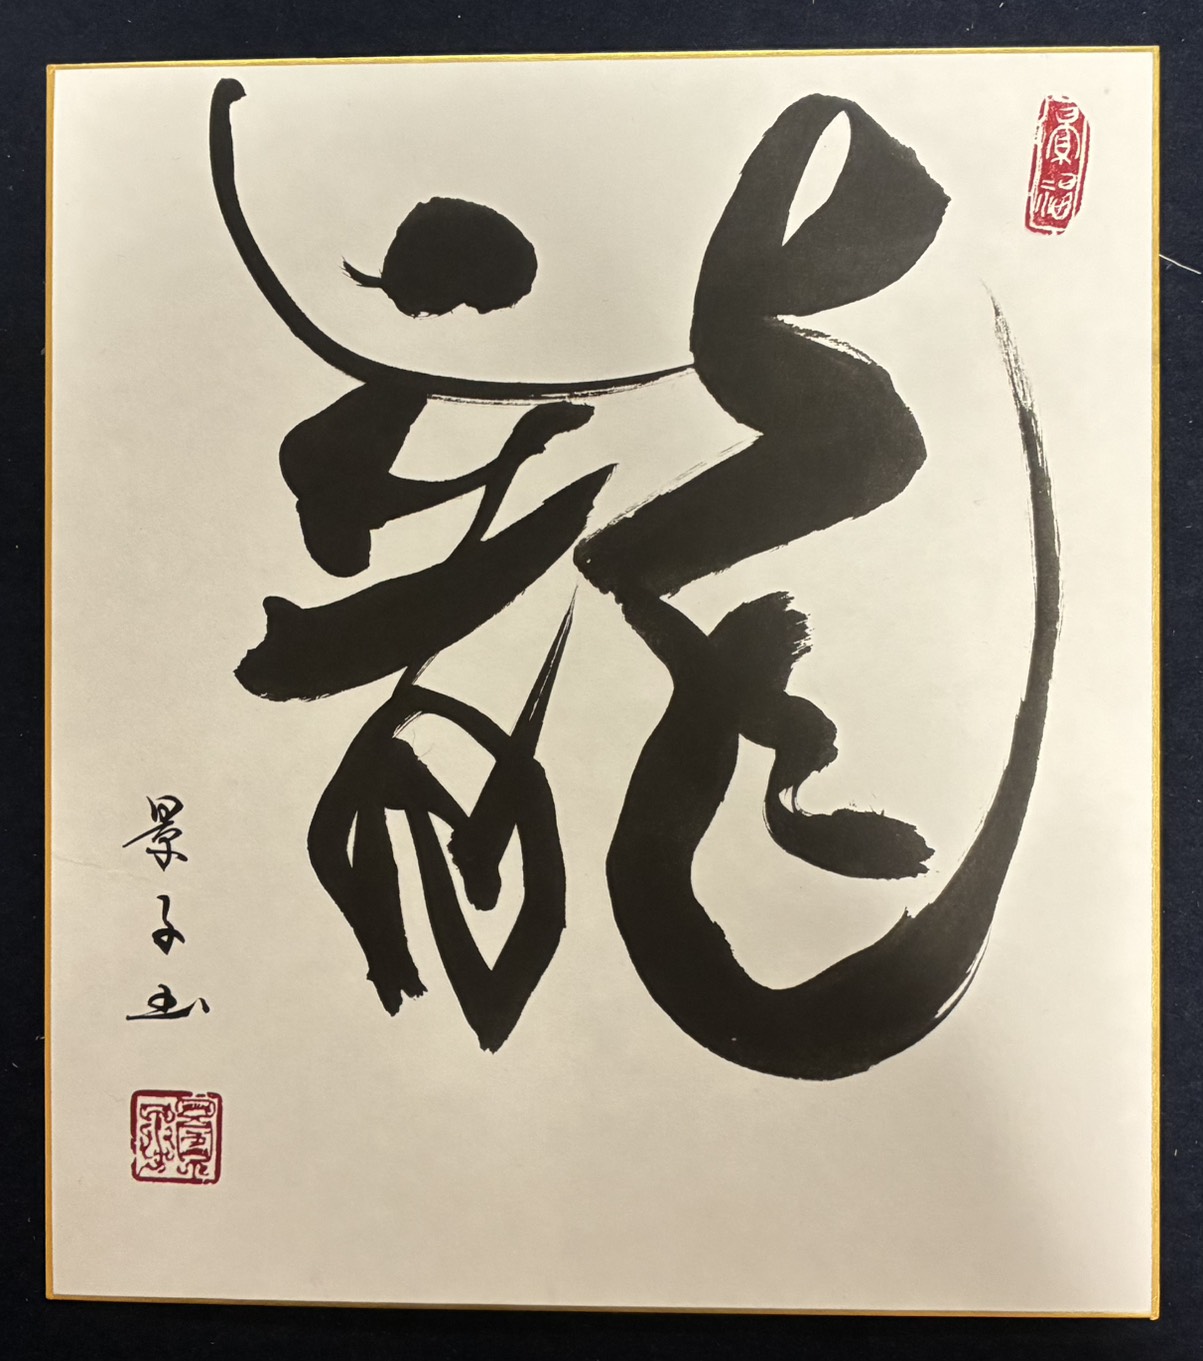 龍
景子書